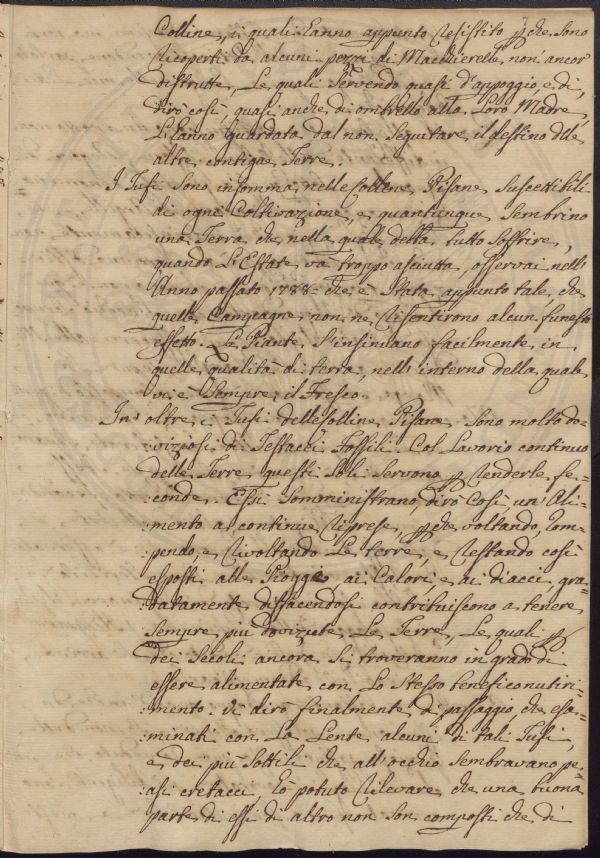 Colline, i quali hanno appunto resistito pche sono
ricoperti da alcuni pezzi di Macchierelle non' ancor
distrutte, Le quali servendo quasi d'appoggio, e di,
dirò così, quasi anche di ombrello alla Loro Madre
L'hanno guardata dal non seguitare il destino dlle
altre contigue Terre.
I Tufi sono insomma nelle Colline Pisane suscettibili
di ogni Coltivazione, e quantunque sembrino
una Terra che nella quale debba tutto soffrire,
quando L'Estate và troppo asciutta, osservai nell'
Anno passato 1788 che è stata appunto tale, che
quelle Campagne non ne risentirono alcun funesto
effetto. Le Piante s'insinuano facilmente in
quelle qualità di terra, nell' interno della quale
vi è sempre il Fresco.
In oltre i Tufi delle Colline Pisane sono molto do=
:viziosi di Testacei Fossili. Col Lavorio continuo
delle Terre questi soli servono p renderle fe=
:conde. Essi somministrano, dirò così, un' Ali=
:mento a continue riprese, pche voltando, rom=
pendo, e rivoltando Le terre, e restando così
esposti alle Piogge ai Calori, e ai diacci gra=
datamente disfacendosi contribuiscono a tenere
sempre più doviziose Le Terre, Le quali p
dei secoli ancora si troveranno in grado di
essere alimentate con Lo stesso benefico nutri=
:mento. Vi dirò finalmente di passaggio che esa=
:minati con La Lente alcuni di tali Tufi,
e dei più sottili che all'occhio sembravano qu=
:asi cretacei, hò potuto rilevare che una buona
parte di essi di altro non son composti che di